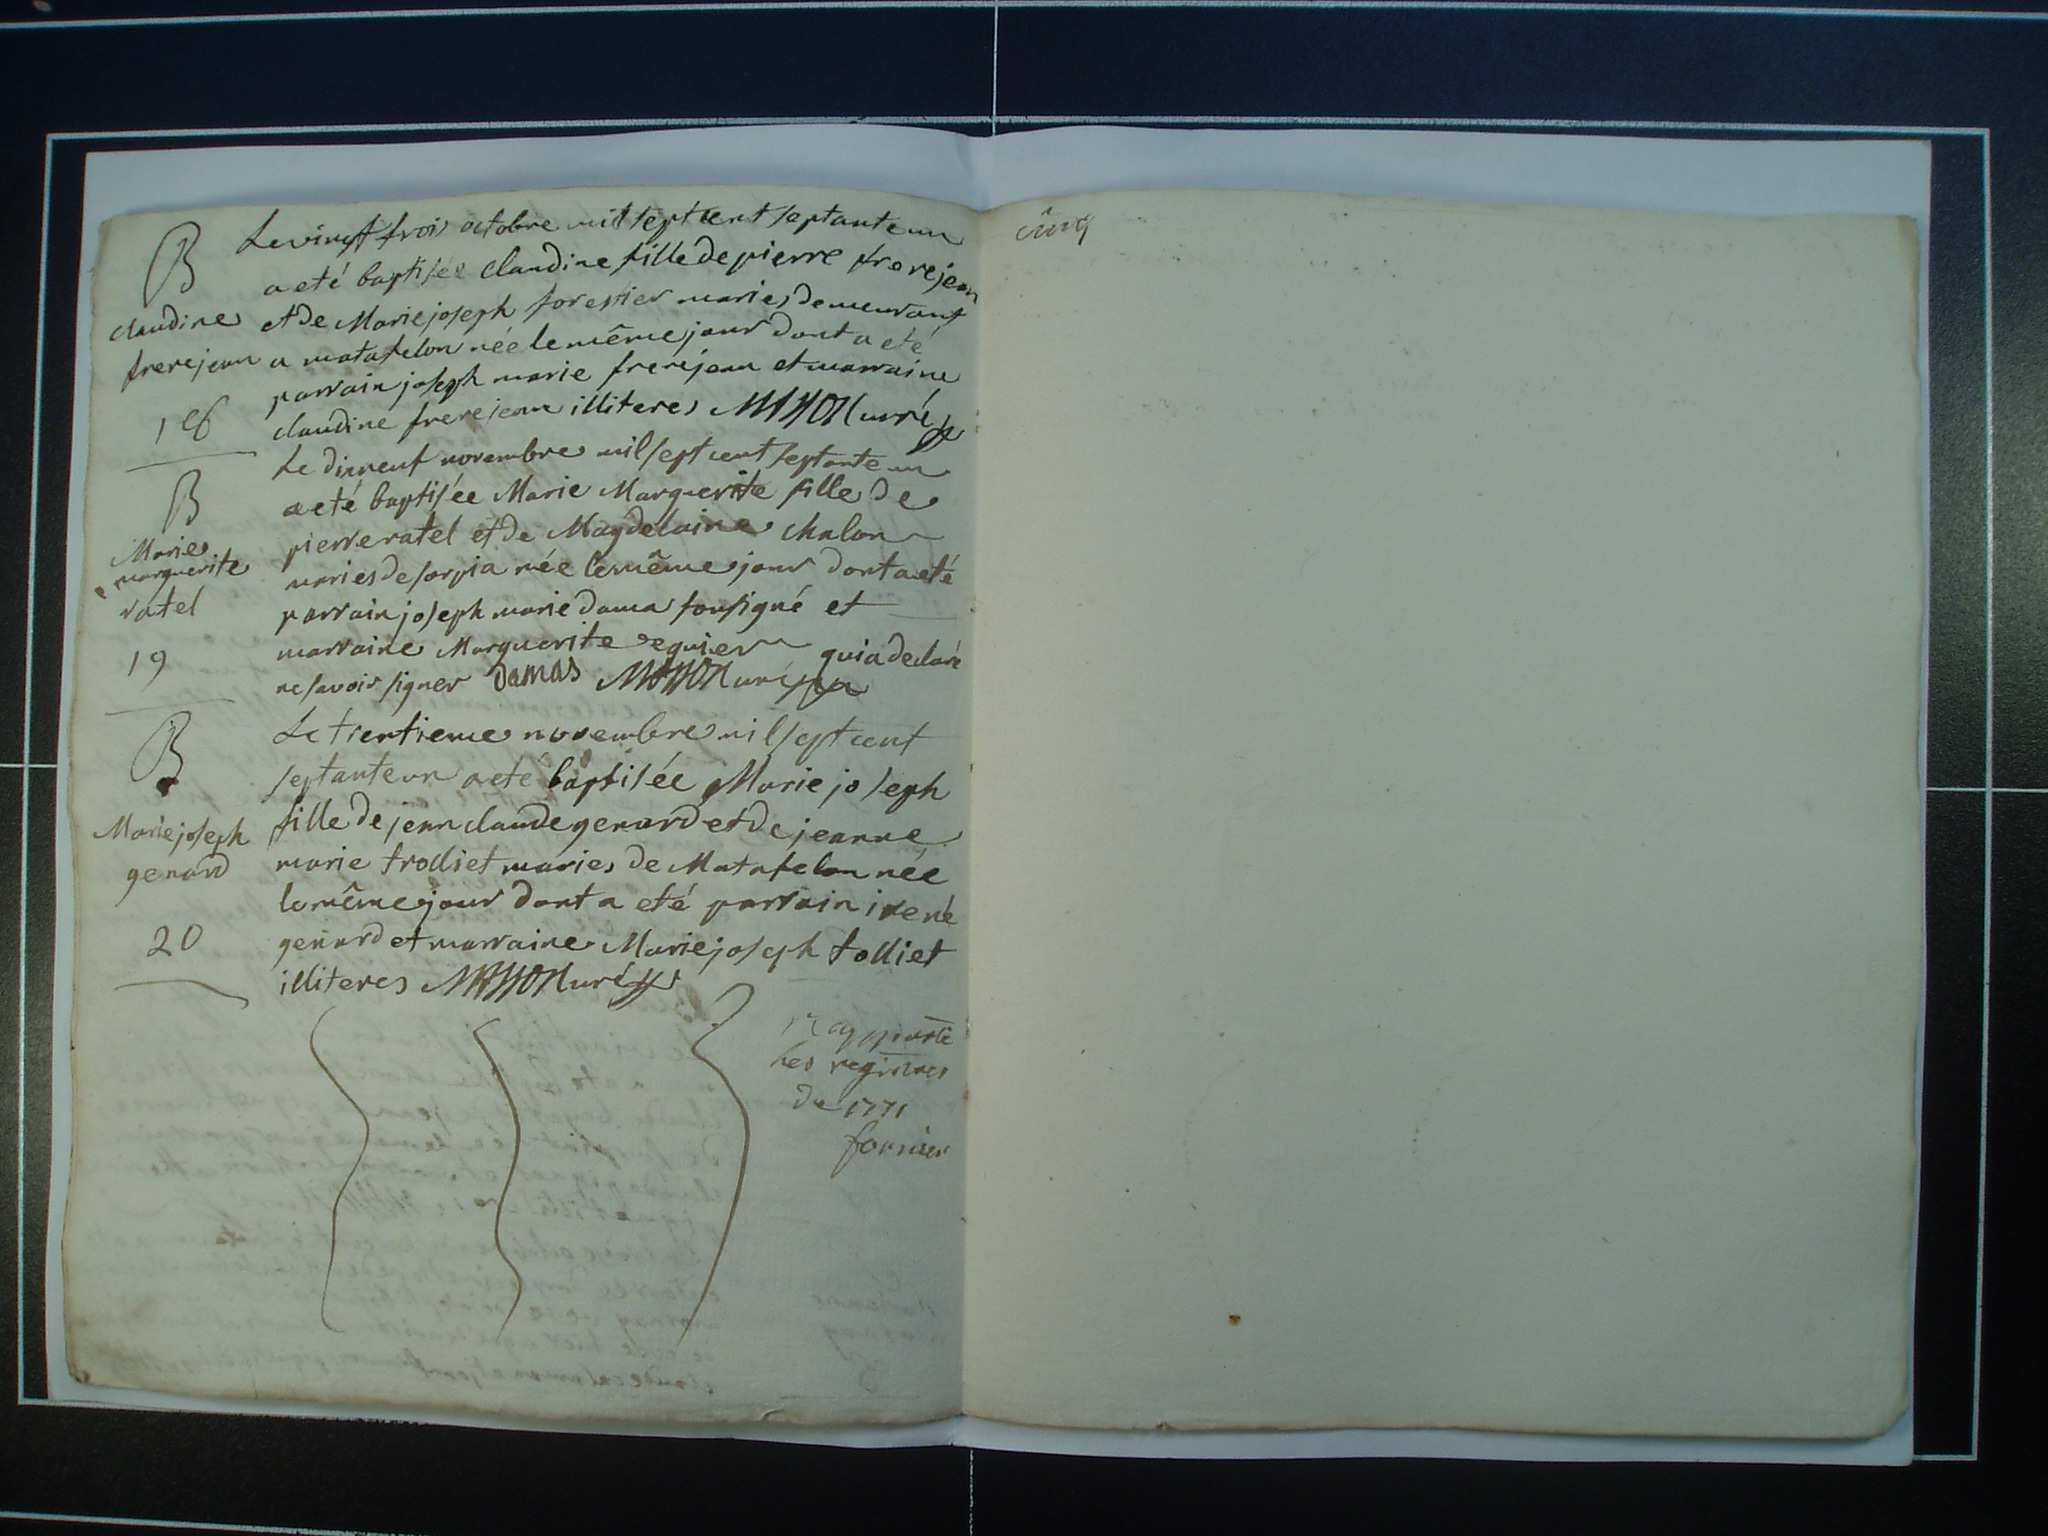 B
claudine
frerejean
18
Le vingt trois octobre mil sept cent septante un
a eté baptisée claudine fille de pierre frerejean
et de Marie joseph forestier maries demeurant
a matafelon née le même jour dont a eté
parrain joseph marie frerejean et marraine
claudine frerejean illiteres MAYON curé
B
Marie
marguerite
ratel
19
Le dixneuf novembre mil sept cent septante un
a eté baptisée Marie Marguerite fille de
pierre ratel et de Magdelaine chalon
maries de sorpia née le même jour dont a eté
parrain joseph marie dama sousigné et
marraine Marguerite requier qui a declaré
ne savoir signer Damas MAYON curé
B
Marie joseph
genard
20
Le trentieme novembre mil sept cent
septante un a eté baptisée Marie joseph
fille de jean claude genard et de jeanne
marie trolliet maries de Matafelon née
le même jour dont a eté parrain irené
genard et marraine Marie joseph tolliet
illiteres MAYON curé
Rapporté
les registres
de 1771
fornier
cinq